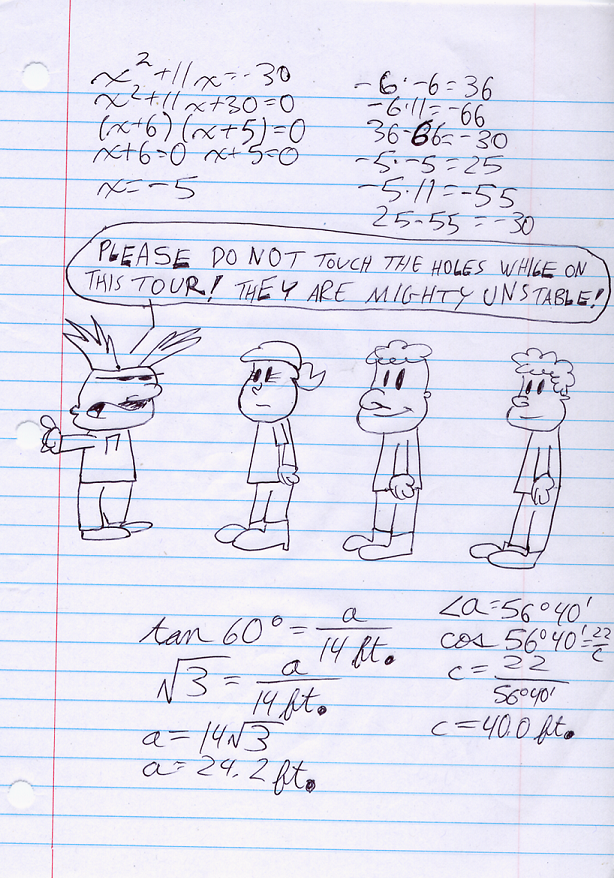 x² + 11x = -30
x² + 11x + 30 = 0
(x+6) (x+5) = 0
x+6=0 x+5=0
x = -5
-6 · -6 = 36
-6 · 11 = -66
36-66 = -30
-5 · -5 = 25
-5 · 11 = -55
25-55 = -30
PLEASE DO NOT TOUCH THE HOLES WHILE ON
THIS TOUR! THEY ARE MIGHTY UNSTABLE!
π
tan 60° = a/14 ft.
√3 = a/14 ft.
a = 14√3
a = 24.2 ft.
∠a = 56°40'
cos 56°40' = 22/c
c = 22/56°40'
c = 40.0 ft.